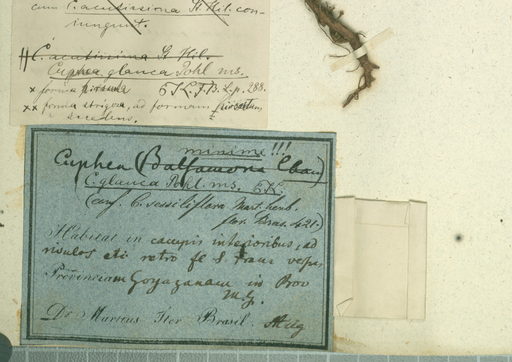 cum C. acutissima St Hil. con-
iungunt.
C. acutissima St Hil.
Cuphea glauca Pohl ms.
× forma
×× forma strigosa, ad formam
accedens.
minime!!!
Cuphea (Balsamona Cham)
C. glauca Pohl. ms.
(conf. C. sessiliflora Mart. herb.
flor. Bras. 421.)
Habitat in campis interioribus, ad
rivulos etc retro fl S. Franc versus
Provinciam Goyazanam in Prov
M.G.
Dr. Martius Iter Brasil.